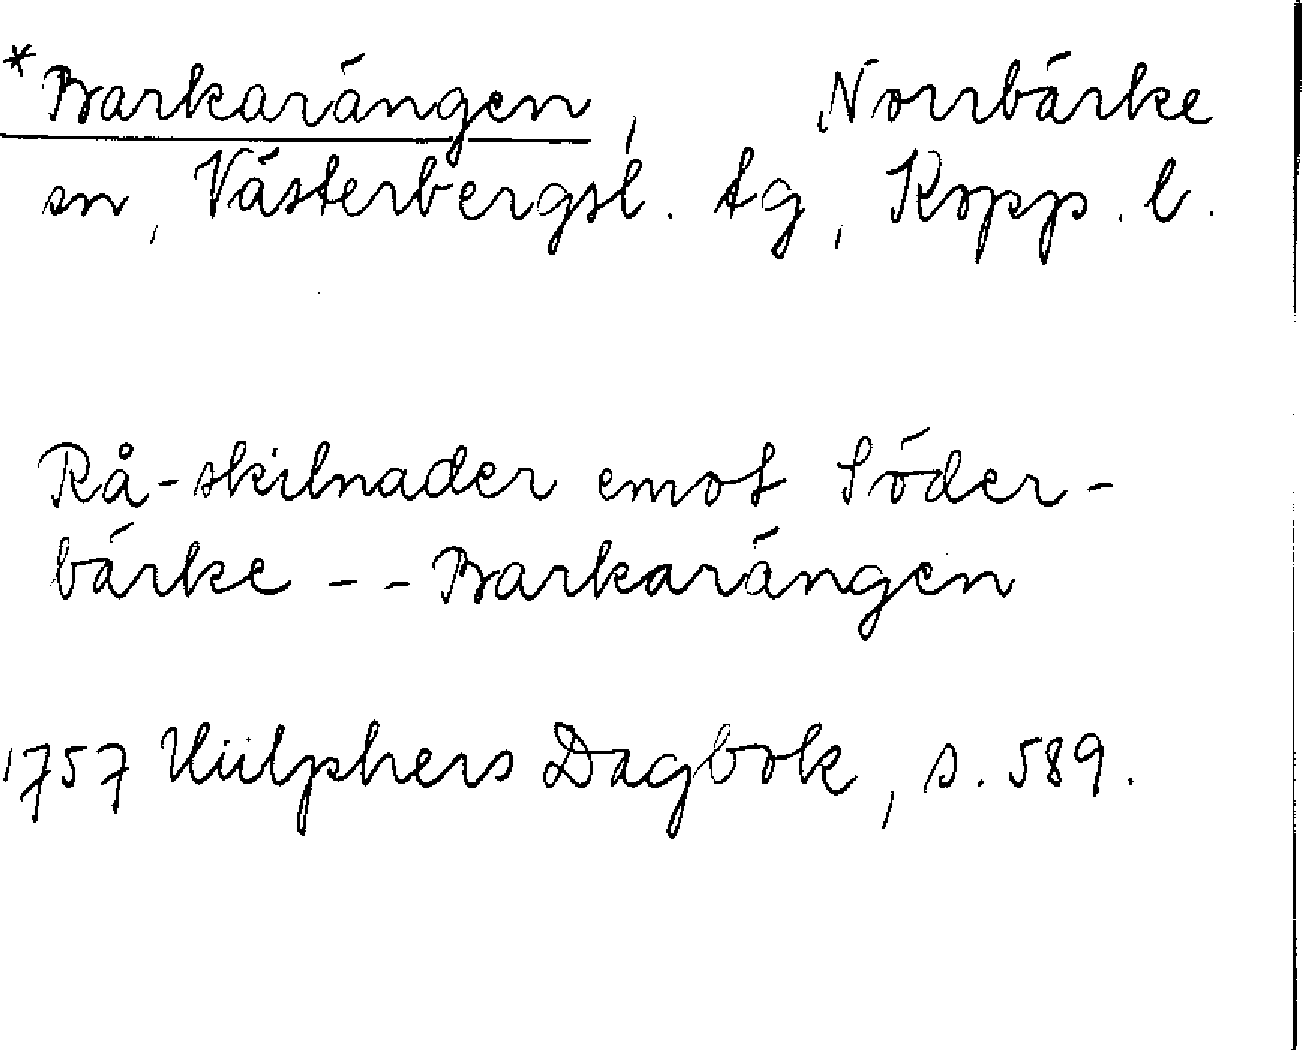 *Barkarängen, Norrbärke
sn, Västerbergsl. tg, Kopp. l.
Rå-skilnader emot Söder-
bärke -- Barkarängen
1757 Hülphers Dagbok, s. 589.